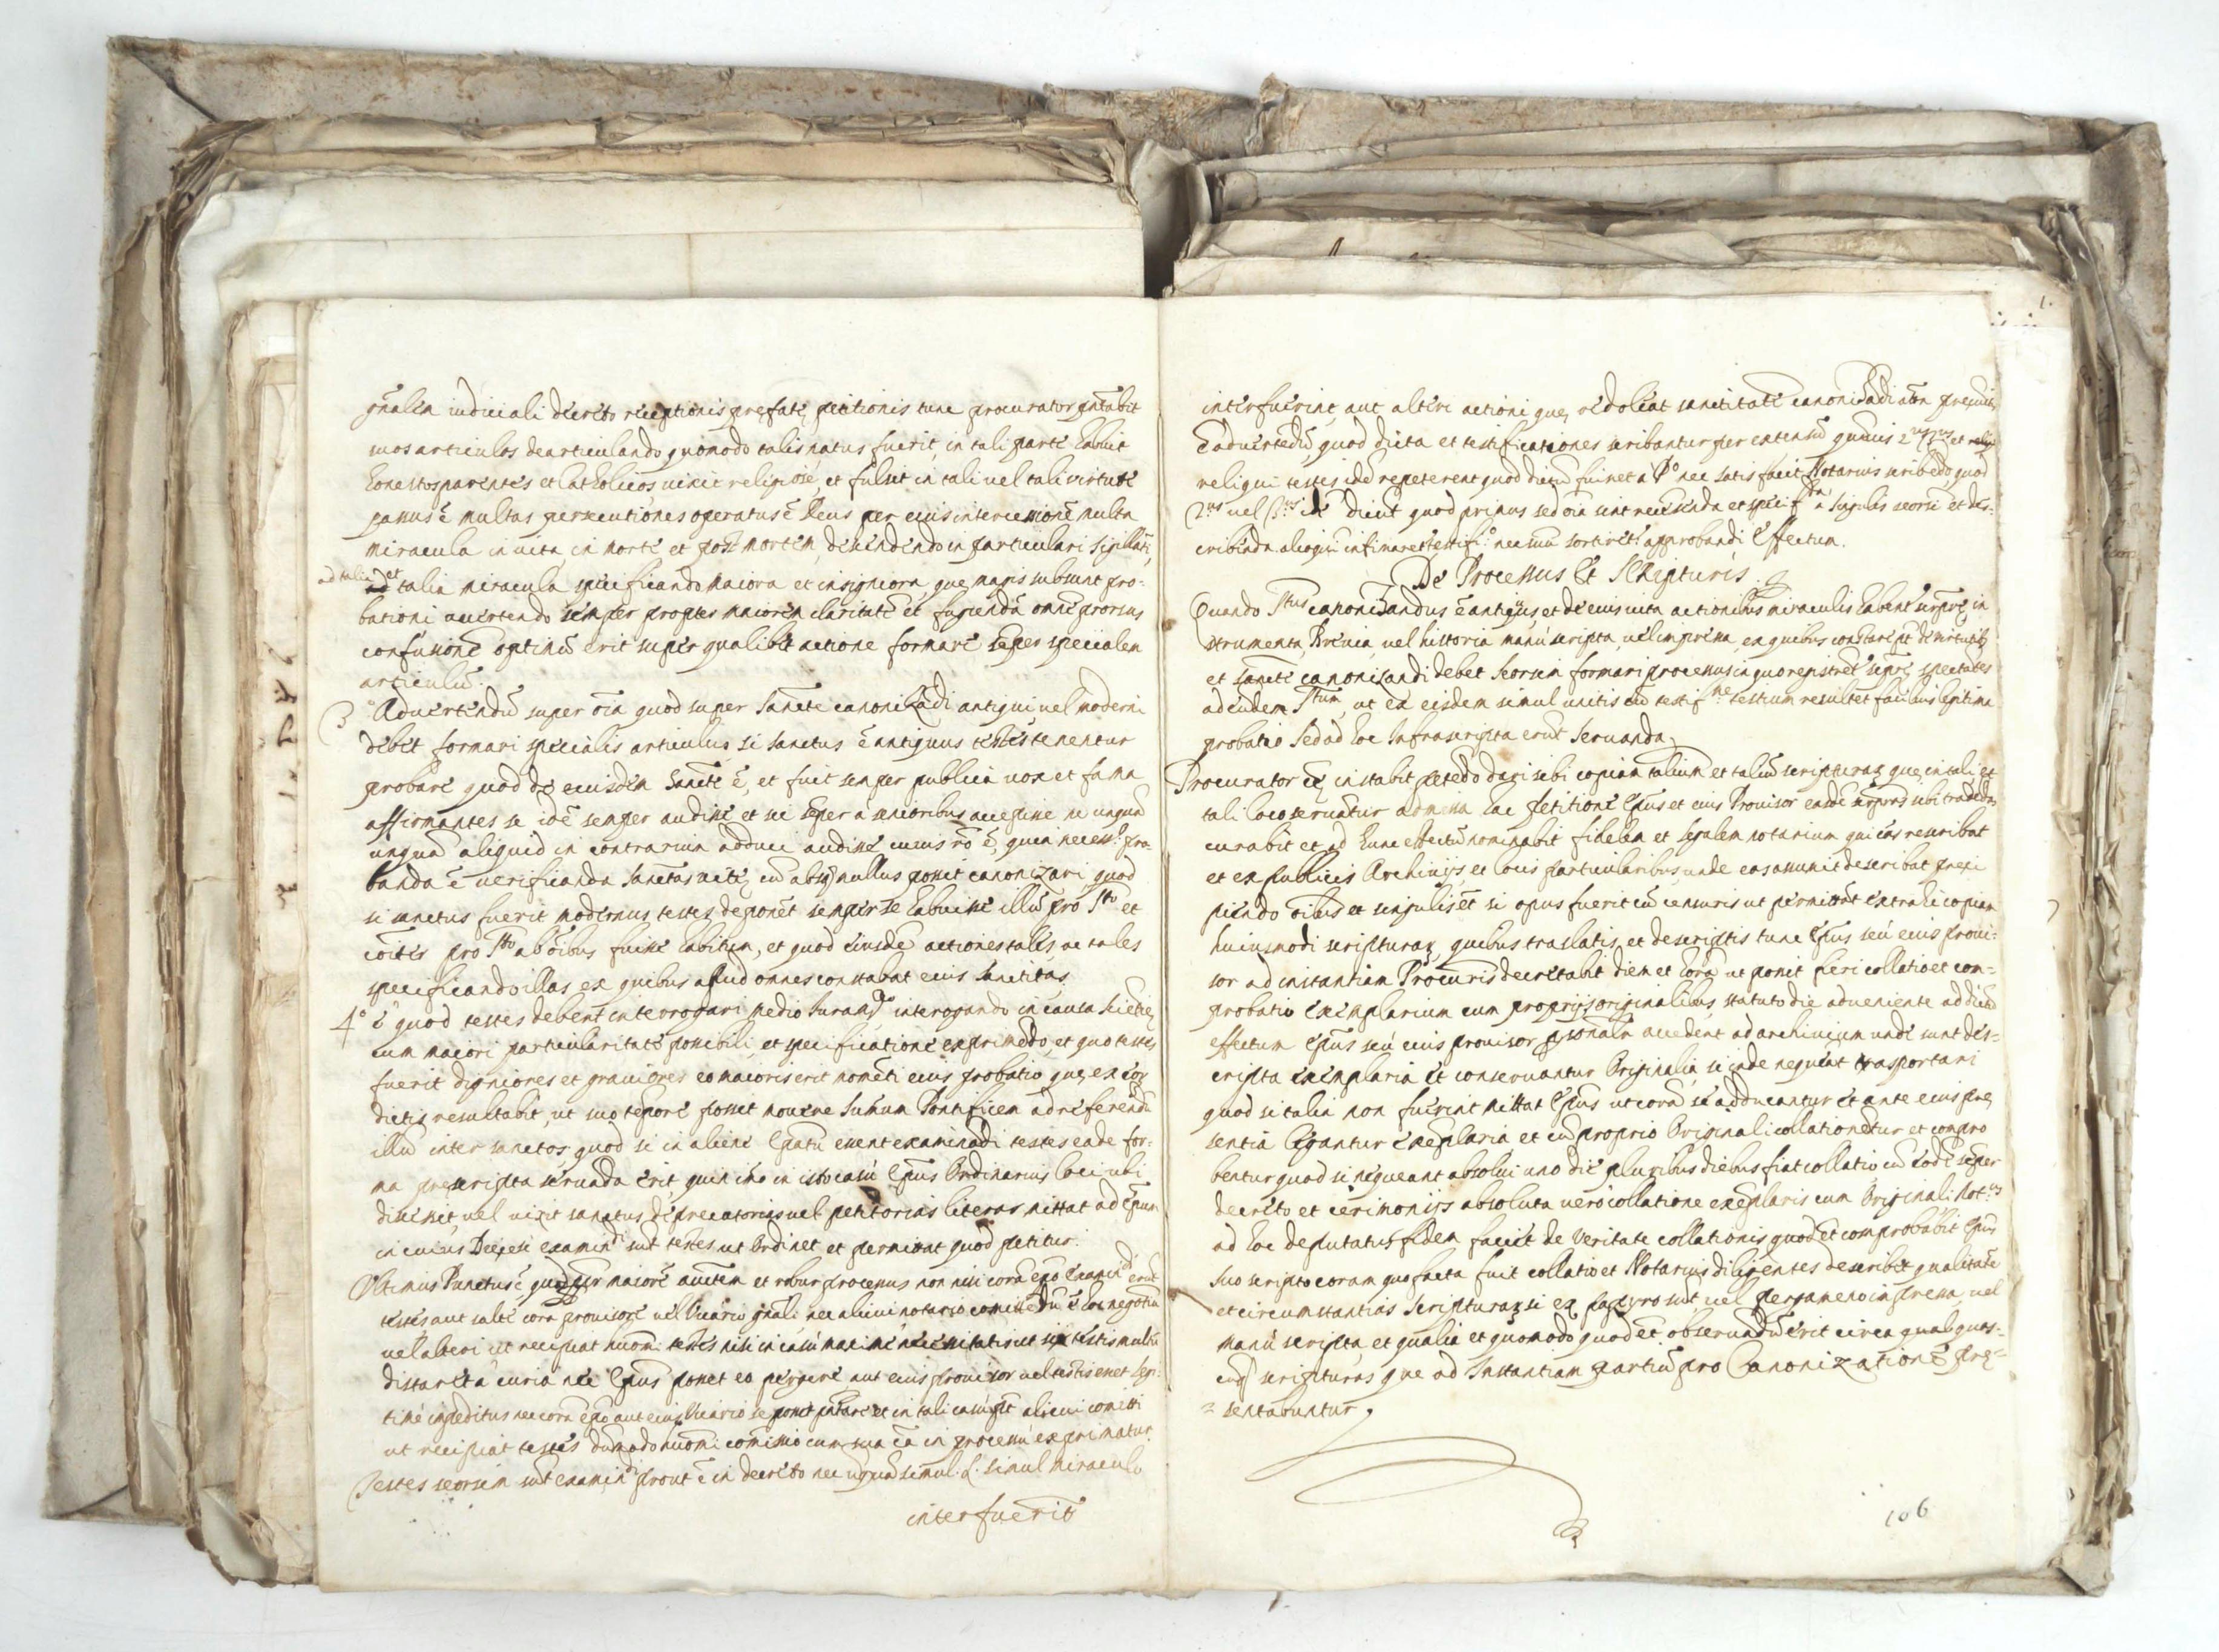 gn̄alem iudiciali decreto receptionis prefate petitionis tunc procurator pn̄tabit
suos articulos dearticulando quomodo talis natus fuerit, in tali parte habuit
honestos parentes et catholicos vixit religiose, et fulsit in tali vel tali virtute
passus ē multas persecutiones operatus ē Deus per eius intercessionē multa
miracula in vita, in morte et post mortem, descendendo in particulari sigillati,
ad talia et talia miracula specificando maiora et insigniora, que magis subsunt pro-
bationi advertendo semper propter maiorem claritatē et fugiendā omnē prorsus
confusionē optimū erit super qualibet actione formare semper specialem
articulū.
3 Advertendū super oīa quod super Sanctē canonizādi antiqui, vel moderni
debet formari specialis articulus, si sanctus ē antiquus testes tenentur
probare quod de eiusdem Sanctē ē, et fuit semper publica vox et fama
affirmantes se idē semper audisse et sic semper a senioribus accepisse nec unquā
unquā aliquid in contrarium adduci audisse cuius rō ē, quia necess.º pro-
banda ē verificanda Sanctas vitę, cū absq nullus possit canonizari quod
si sanctus fuerit modernus, testes deponēt semper se habuisse illū pro Sto et
coīter pro Sto ab oībus fuisse habitum, et quod eiusdē actiones tales, ac tales
specificando illas ex quibus apud omnes constabat eius Sanctitas.
4º ē quod testes debent interrogari medio Iuramto interogando in causa scietię
cum maiori particularitate possibili, et specificatione exprimēdo, et quo testes
fuerit digniores et graviores eo maioris erit momēti eius probatio, que, ex eor
dictis resultabit, ut suo tēpore posset movere Sumum Pontificem ad referendū
illū inter sanctos, quod si in alieno Epatu essent examinādi testes eadē for-
ma prescripta servāda erit, quin imo in isto casu Epus Ordinarius loci ubi
decessit, vel vixit sanctus, deprecatorias vel petitorias literas mittat ad Epum
in cuius Diecesi examindi sut testes ut Ordinet et permittat quod petitur.
Ultimus Punctus ē quod pr maiorē auctem et robur processus non nisi corā epo examindi erūt
testes aut saltē corā provisore vel Vicario gn̄ali nec alicui notario comittēdū ē hoc negotiū
vel alteri ut recipiat testes nisi in casu maximē necessitatis ut si testis multū
distaret a curia nec Epus posset eo pergere aut eius provisor vel testis esset legi-
timē impeditus nec corā epo aut eius Vicario se posset pn̄tare et in tali casu pt alicui comitti
ut recipiat testes dumodo comissio cum sua cā in processu exprimatur.
Testes seorsim sut examindi prout ē in decreto nec unquā simul. L. simul miraculo
interfuerit
1.
interfuerint aut alteri actioni que, redoleat sanctitatē canonizādi
ē advertēdū quod dicta et testificationes scribantur per extensū quāvis 2us 3us et reliq
reliqui testes idē repeterent quod dictū fuisset a Pº nec satis facit Notarius scribēdo, quod
2us vel 3us idē dicut quod primus sed oīa sint recensenda et specifda a singulis seorsū et des-
cribēda alioqui infirmaret testifº nec suū sortiret approbandi effectum.
De Processus Et Scripturis.
Quando Stus canonizandus ē antiquus, et de eius vita actionibus miraculis habent scrpre, in
strumenta, Brevia, vel historia manu scripta, vel impressa, ex quibus constare pt de virtutib
et sanctē canonizandi debet seorsim formari processus in quo registret scpre, spectātes
ad eūdem Stum, ut ex eisdem simul unitis cū testifne testium resultet facilius legitima
probatio sed ad hoc Infrascripta erūt servanda,
Procurator cē, instabit petēdo dari sibi copiam talium et taliū scripturar, que, in tali et
tali loco servātur admissa hac petitione Epus et eius Provisor easdē scrpras sibi tradēdas
curabit et ad hunc effectū nominabit fidelem et legalem notarium qui eas rescribat
et ex publicis Archivijs, et locis particularibus, unde eas assumit describat preci
piendo oībus et singulis ēt si opus fuerit cū censuris ut permittāt extrahi copiam
huiusmodi scripturar, quibus traslatis, et descriptis tunc Epus seu eius provi-
sor ad instantiam Procuris decretabit diem et horā, ut possit fieri collatio et con-
probatio exemplarium cum proprijs originalibus, statuto die adveniente ad dictū
effectum Epus seu eius provisor psonalr accedent ad archivium unde sunt des-
cripta exemplaria et conservantur Originalia, si inde nequeāt trasportari
quod si talia non fuerint mittat Epus ut corā se adducantur et ante eius pre,
sentiā legantur exēplaria et cū proprio Originali collationētur et conpro
bentur quod si nequeant absolvi uno die pluribus diebus fiat collatio cū eodē semper
decreto et cerimonijs absoluta vero collatione exēplaris cum Originali Notus
ad hoc deputatus fidem faciet de veritate collationis quod et comprobabit Epus
suo scripto coram quo facta fuit collatio et Notarius diligenter describet qualitatē
et circumstantias scripturar, si ex papyro sut, vel pergameno impressa, vel
manu scripta, et qualia et quomodo quod ēt observandū erit circa qualquas-
cuq scripturas que ad Instantiam partiū pro Canonizatione pre-
= sentabuntur.
106